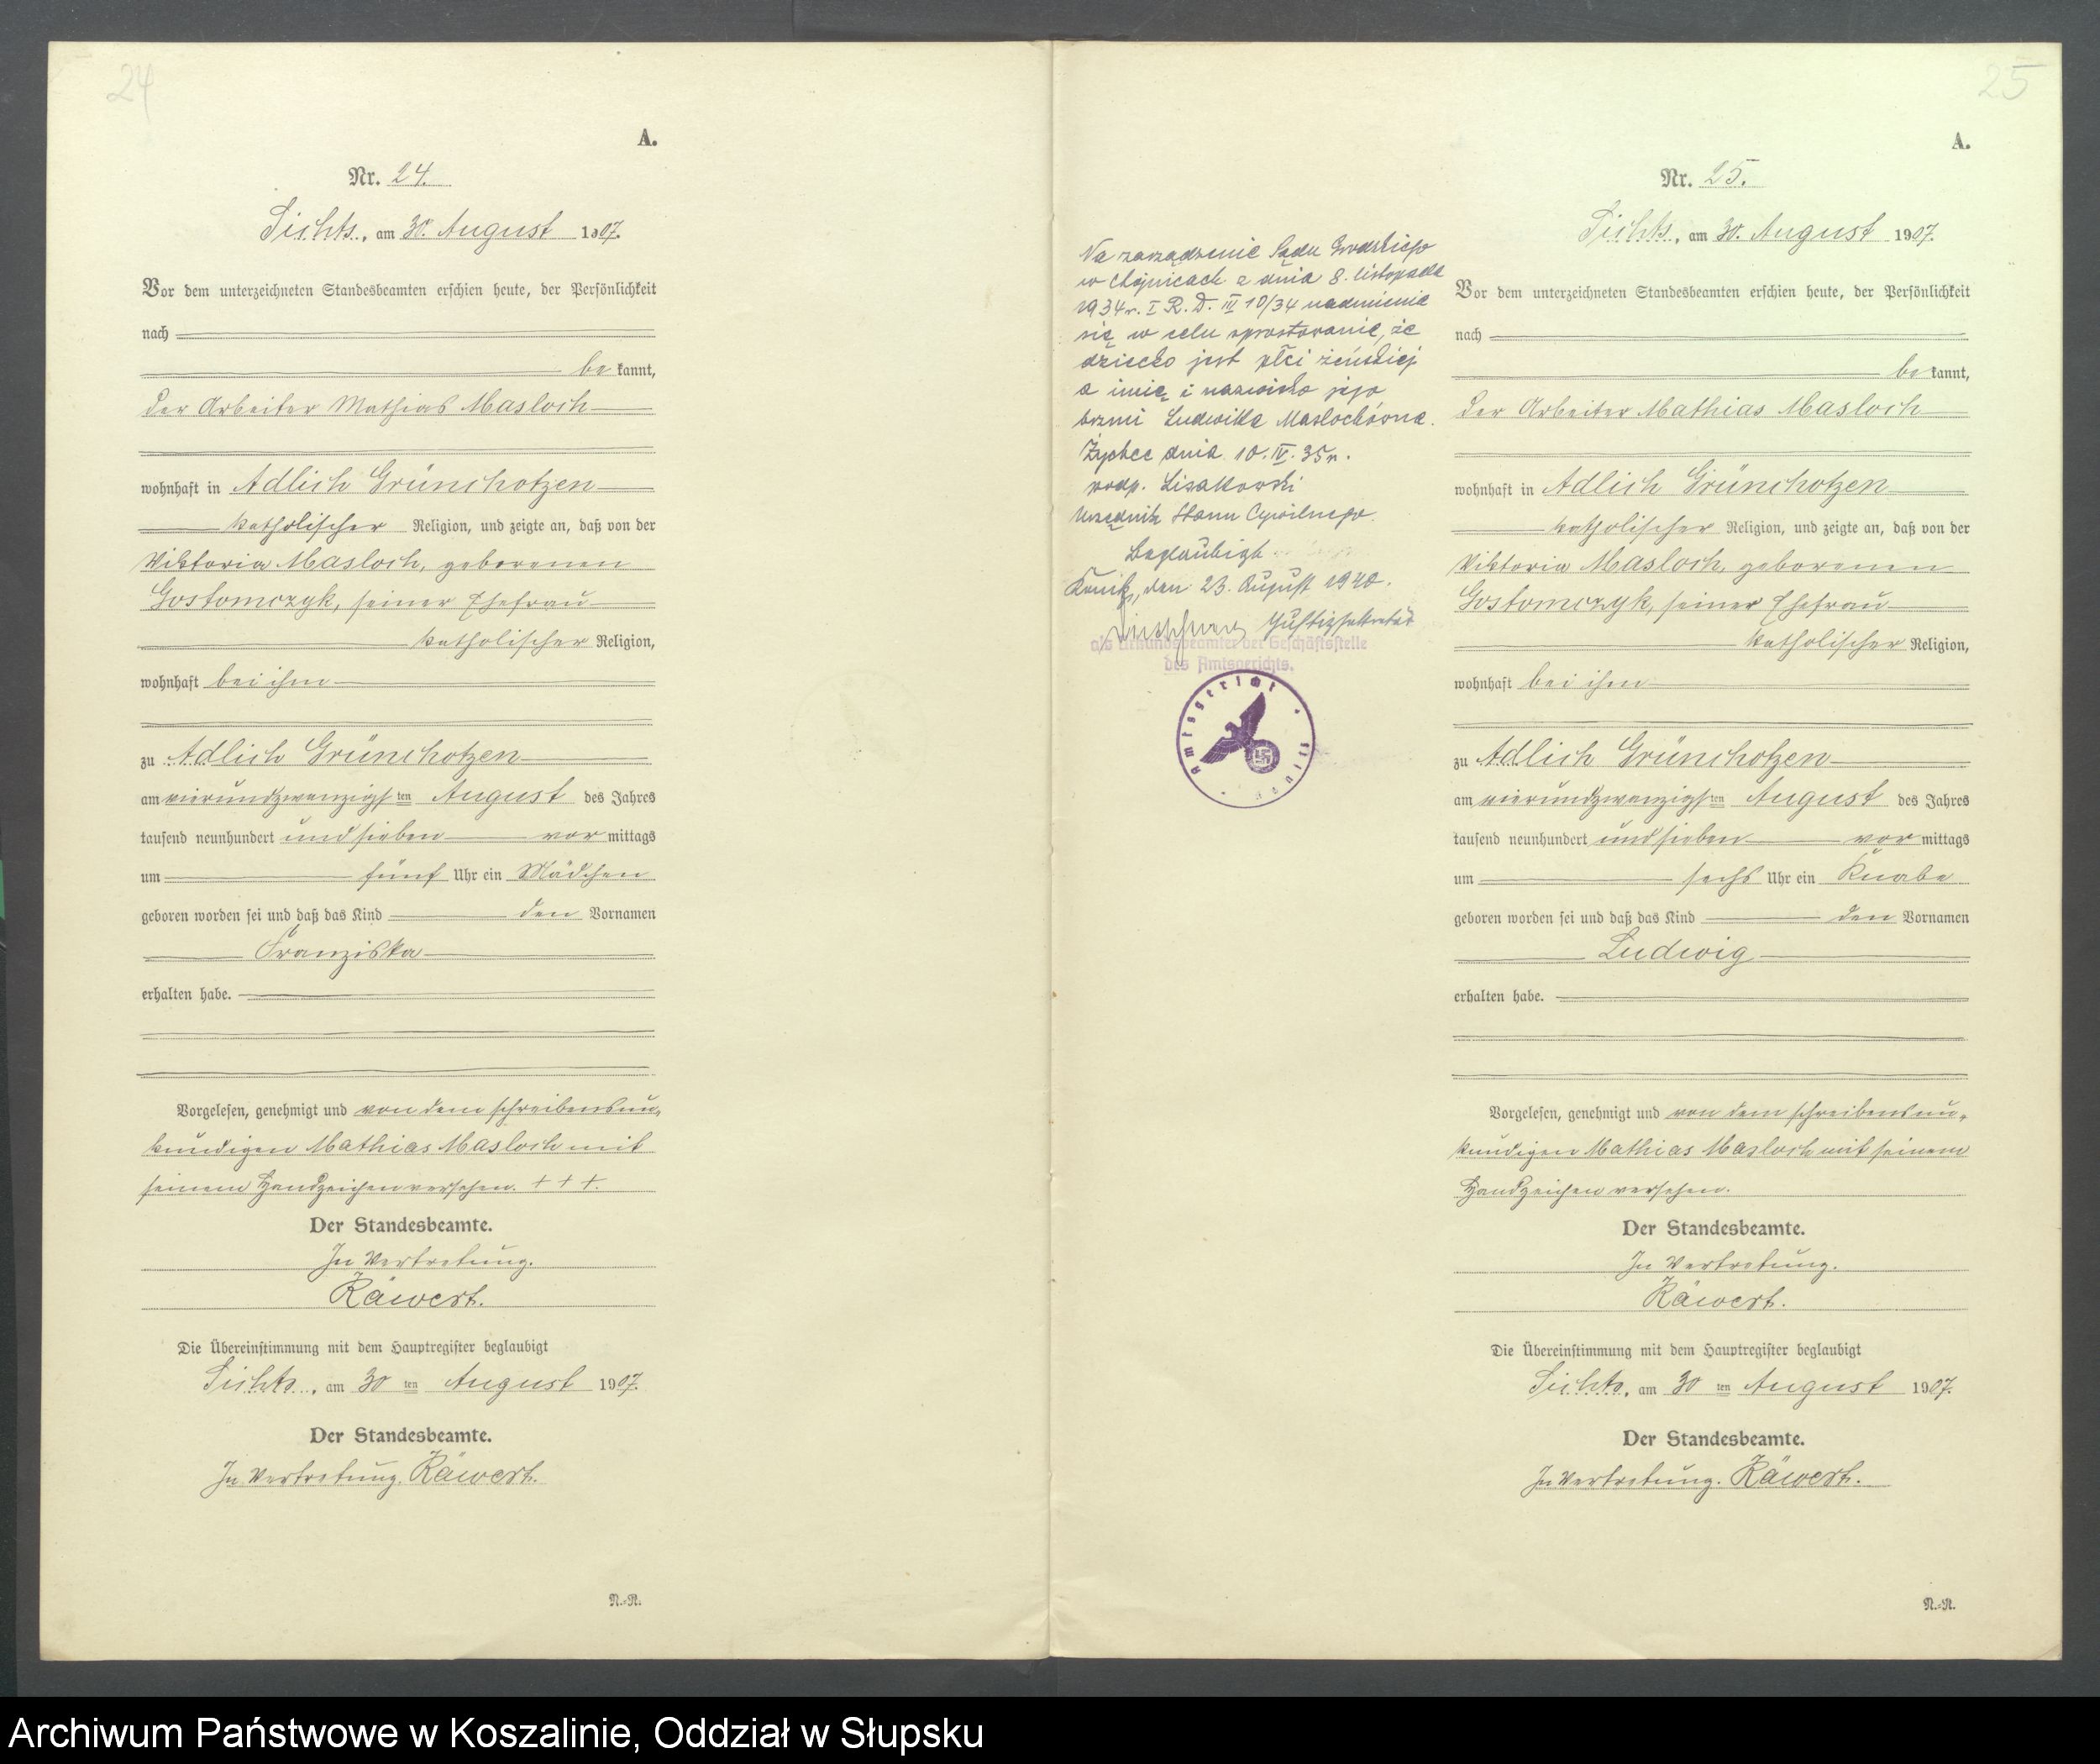 24
A.
Nr. 24.
Sichts, am 30. August 1907.
Vor dem unterzeichneten Standesbeamten erschien heute, der Persönlichkeit
nach
be kannt,
der Arbeiter Mathias Masloch
wohnhaft in Adlich Grünchotzen
katholischer Religion, und zeigte an, daß von der
Viktoria Masloch, geborenen
Gostomczyk, seiner Ehefrau
katholischer Religion,
wohnhaft bei ihm
zu Adlich Grünchotzen
am vierundzwanzigsten August des Jahres
tausend neunhundert und sieben vor mittags
um fünf Uhr ein Mädchen
geboren worden sei und daß das Kind den Vornamen
Franziska
erhalten habe.
Vorgelesen, genehmigt und von dem schreibensun-
kundigen Mathias Masloch mit
seinem Handzeichen versehen. +++.
Der Standesbeamte.
In Vertretung.
Räwert.
Die Übereinstimmung mit dem Hauptregister beglaubigt
Sichts, am 30 ten August 1907.
Der Standesbeamte.
In Vertretung. Räwert.
N.-R.
25
Na zarządzenie Sądu Grodzkiego
w Chojnicach z dnia 8. listopada
1934 r. I R. D. III 10/34 nadmienia
się w celu sprostowania, że
dziecko jest płci żeńskiej
a imię i nazwisko jego
brzmi Ludwika Maslochówna.
Żychce dnia 10. IV. 35 r.
podp. Lisakowski
Urzędnik Stanu Cywilnego.
Beglaubigt
Konitz, den 23. August 1940.
Justizsekretär
als Urkundsbeamter der Geschäftsstelle
des Amtsgerichts.
Amtsgericht
A.
Nr. 25.
Sichts, am 30. August 1907.
Vor dem unterzeichneten Standesbeamten erschien heute, der Persönlichkeit
nach
be kannt,
der Arbeiter Mathias Masloch
wohnhaft in Adlich Grünchotzen
katholischer Religion, und zeigte an, daß von der
Viktoria Masloch, geborenen
Gostomczyk, seiner Ehefrau
katholischer Religion,
wohnhaft bei ihm
zu Adlich Grünchotzen
am vierundzwanzigsten August des Jahres
tausend neunhundert und sieben vor mittags
um sechs Uhr ein Knabe
geboren worden sei und daß das Kind den Vornamen
Ludwig
erhalten habe.
Vorgelesen, genehmigt und von dem schreibensun-
kundigen Mathias Masloch mit seinem
Handzeichen versehen.
Der Standesbeamte.
In Vertretung.
Räwert.
Die Übereinstimmung mit dem Hauptregister beglaubigt
Sichts, am 30 ten August 1907.
Der Standesbeamte.
In Vertretung. Räwert.
N.-R.
Archiwum Państwowe w Koszalinie, Oddział w Słupsku